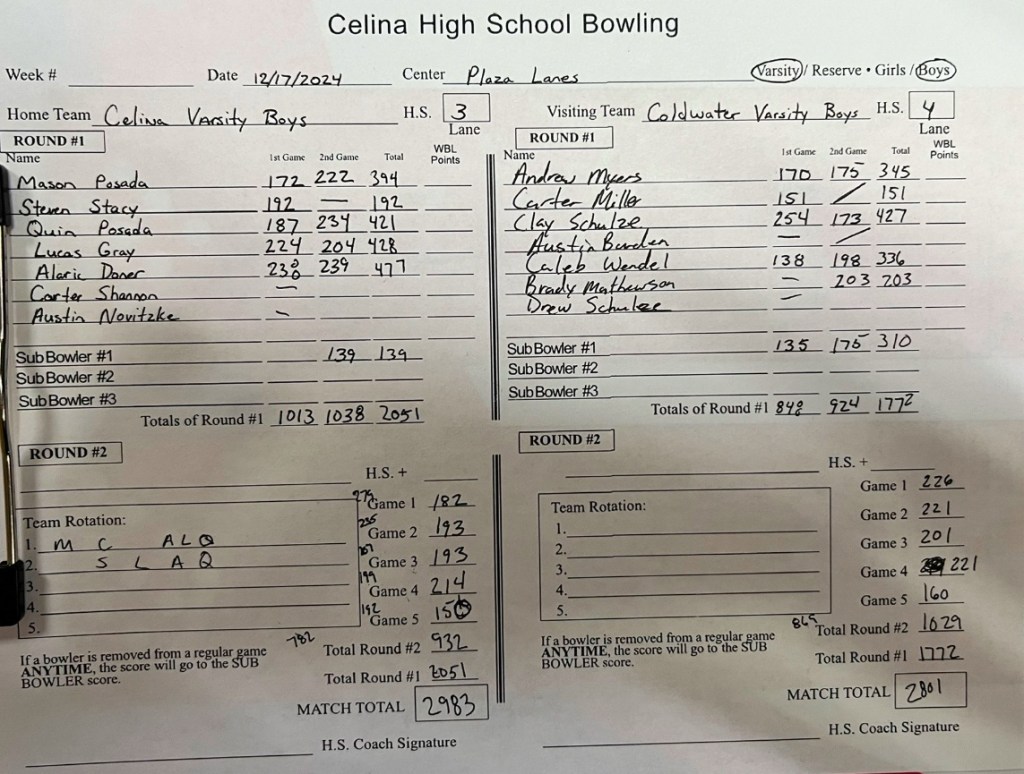 Celina High School Bowling
Week # Date 12/17/2024 Center Plaza Lanes Varsity / Reserve • Girls / Boys
Home Team Celina Varsity Boys H.S. 3 Lane
ROUND #1
Name 1st Game 2nd Game Total WBL Points
Mason Posada 172 222 394
Steven Stacy 192 — 192
Quin Posada 187 234 421
Lucas Gray 224 204 428
Alaric Doner 238 239 477
Carter Shannon —
Austin Novitzke -
Sub Bowler #1 139 139
Sub Bowler #2
Sub Bowler #3
Totals of Round #1 1013 1038 2051
Visiting Team Coldwater Varsity Boys H.S. 4 Lane
ROUND #1
Name 1st Game 2nd Game Total WBL Points
Andrew Myers 170 175 345
Carter Miller 151 / 151
Clay Schulze 254 173 427
Austin Burden — /
Caleb Wendel 138 198 336
Brady Mathewson - 203 203
Drew Schulze -
Sub Bowler #1 135 175 310
Sub Bowler #2
Sub Bowler #3
Totals of Round #1 848 924 1772
ROUND #2
H.S. +
Team Rotation:
1. M C A L Q
2. S L A Q
3.
4.
5.
Game 1 182
235 Game 2 193
Game 3 193
199 Game 4 214
192 Game 5 150
782 Total Round #2 932
Total Round #1 2051
MATCH TOTAL 2983
If a bowler is removed from a regular game
ANYTIME, the score will go to the SUB
BOWLER score.
H.S. Coach Signature
ROUND #2
H.S. +
Team Rotation:
1.
2.
3.
4.
5.
Game 1 226
Game 2 221
Game 3 201
Game 4 221
Game 5 160
865 Total Round #2 1029
Total Round #1 1772
MATCH TOTAL 2801
If a bowler is removed from a regular game
ANYTIME, the score will go to the SUB
BOWLER score.
H.S. Coach Signature